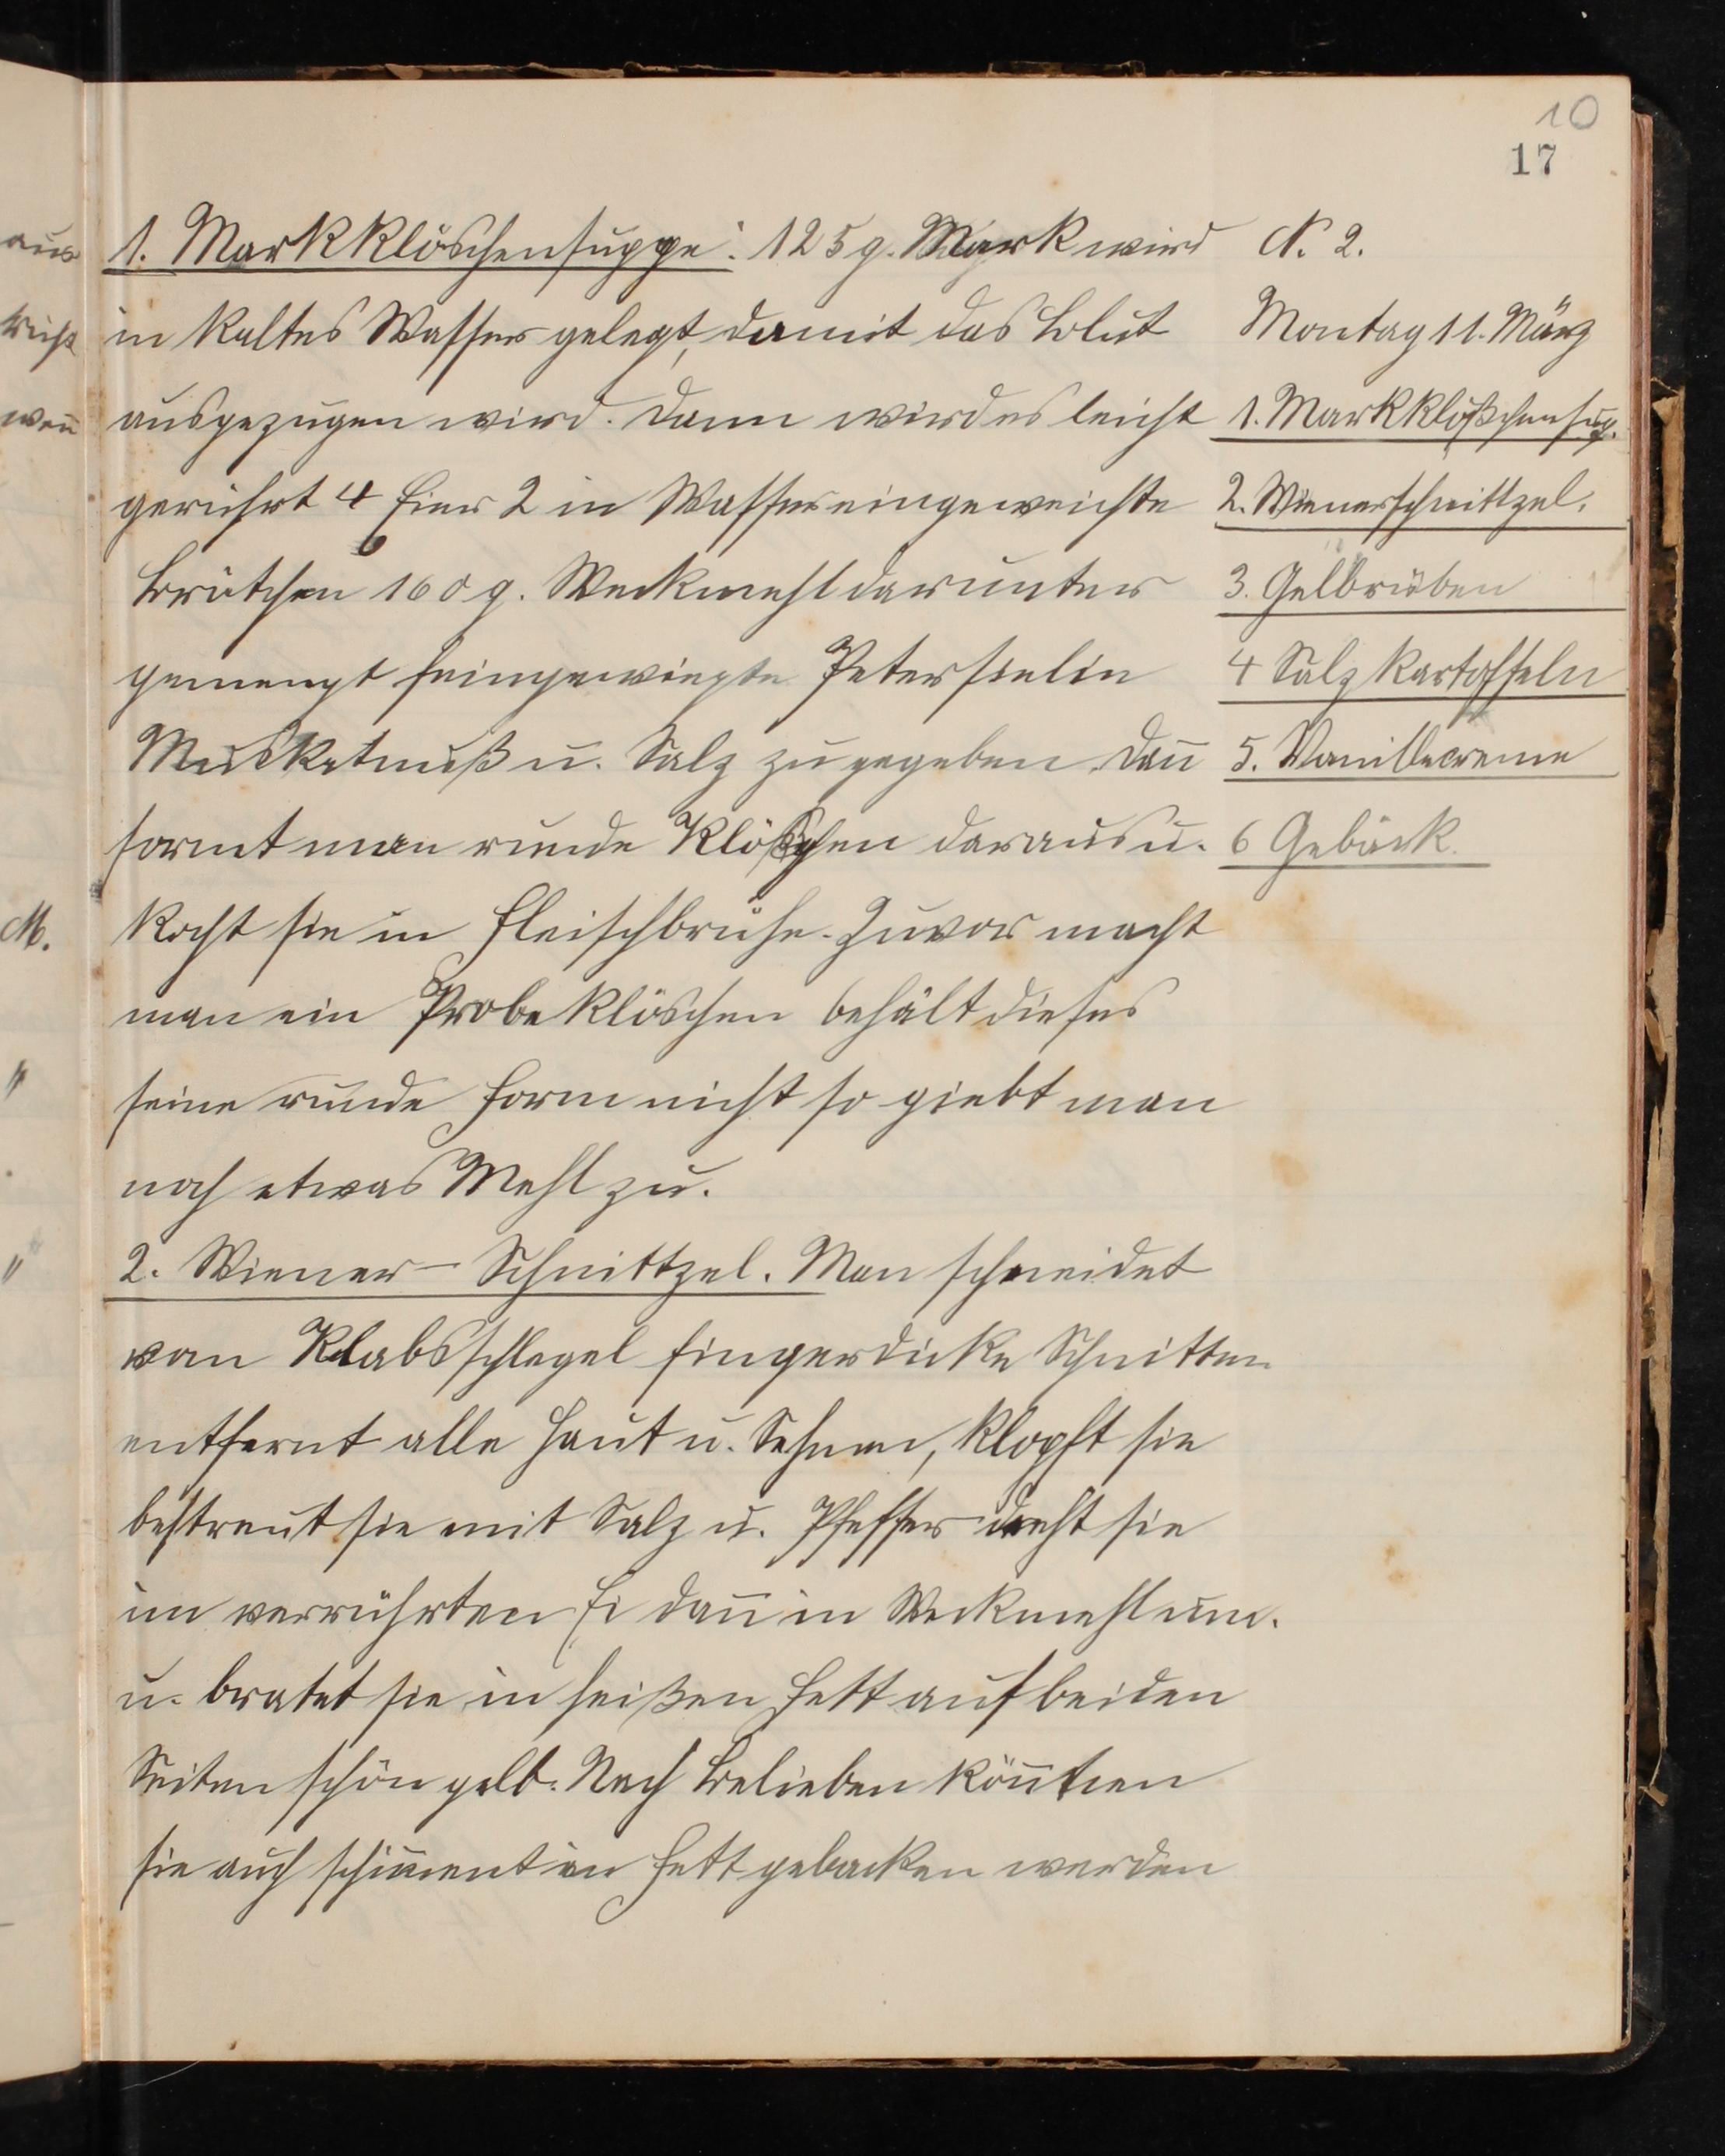 10
17
1. Markklöschensuppe: 125 g. Mark wird
in kaltes Wasser gelegt, damit das Blut
ausgezugen wird. Dann wird es leicht
gerührt 4 Eier 2 in Wasser eingeweichte
Brötchen 160 g. Weckmehl darunter
gemengt feingewiegte Petersielie
Muskatnuß u. Salz zugegeben. Dan̄
formt man runde Klößchen daraus u.
kocht sie in Fleischbrühe. Zuvor macht
man ein Probeklöschen behält dieses
seine runde Form nicht so giebt man
noch etwas Mehl zu.
2. Wiener-Schnittzel. Man schneidet
vom Klabsschlegel fingerdicke Schnitten
entfernt alle Haut u. Sehnen, klopft sie
bestreut sie mit Salz u. Pfeffer dreht sie
im verrührten Ei dan̄ in Weckmehl um.
u. bratet sie in heißen Fett auf beiden
Seiten schön gelb. Nach Belieben kön̄nen
sie auch schwimment in Fett gebacken werden
N. 2.
Montag 11. März
1. Markklößchensup.
2. Wienerschnittzel.
3. Gelbrüben
4 Salzkartoffeln
5. Vanillecreme
6 Gebäck.
aus
wen̄
M.
"
"